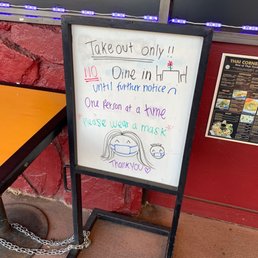 Take out only!!
NO Dine in
until further notice
One person at a time
*please wear a mask*
THANK YOU
THAI CORNER